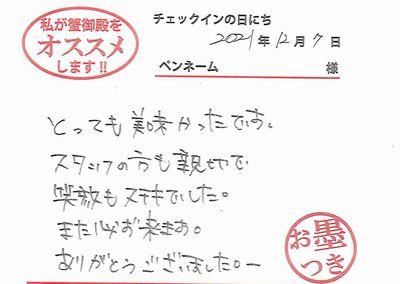 私が蟹御殿を
オススメ
します!!
チェックインの日にち
2021年12月7日
ペンネーム 様
とっても美味かったです。
スタッフの方も親切で
笑顔もステキでした。
また必ず来ます。
ありがとうございました。ー
お墨
つき